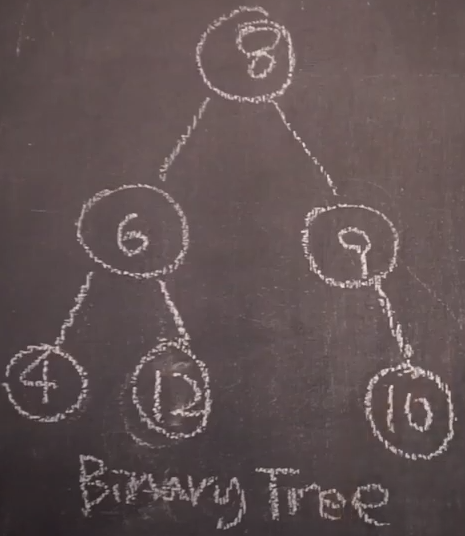 8
6
9
4
12
10
Binary Tree